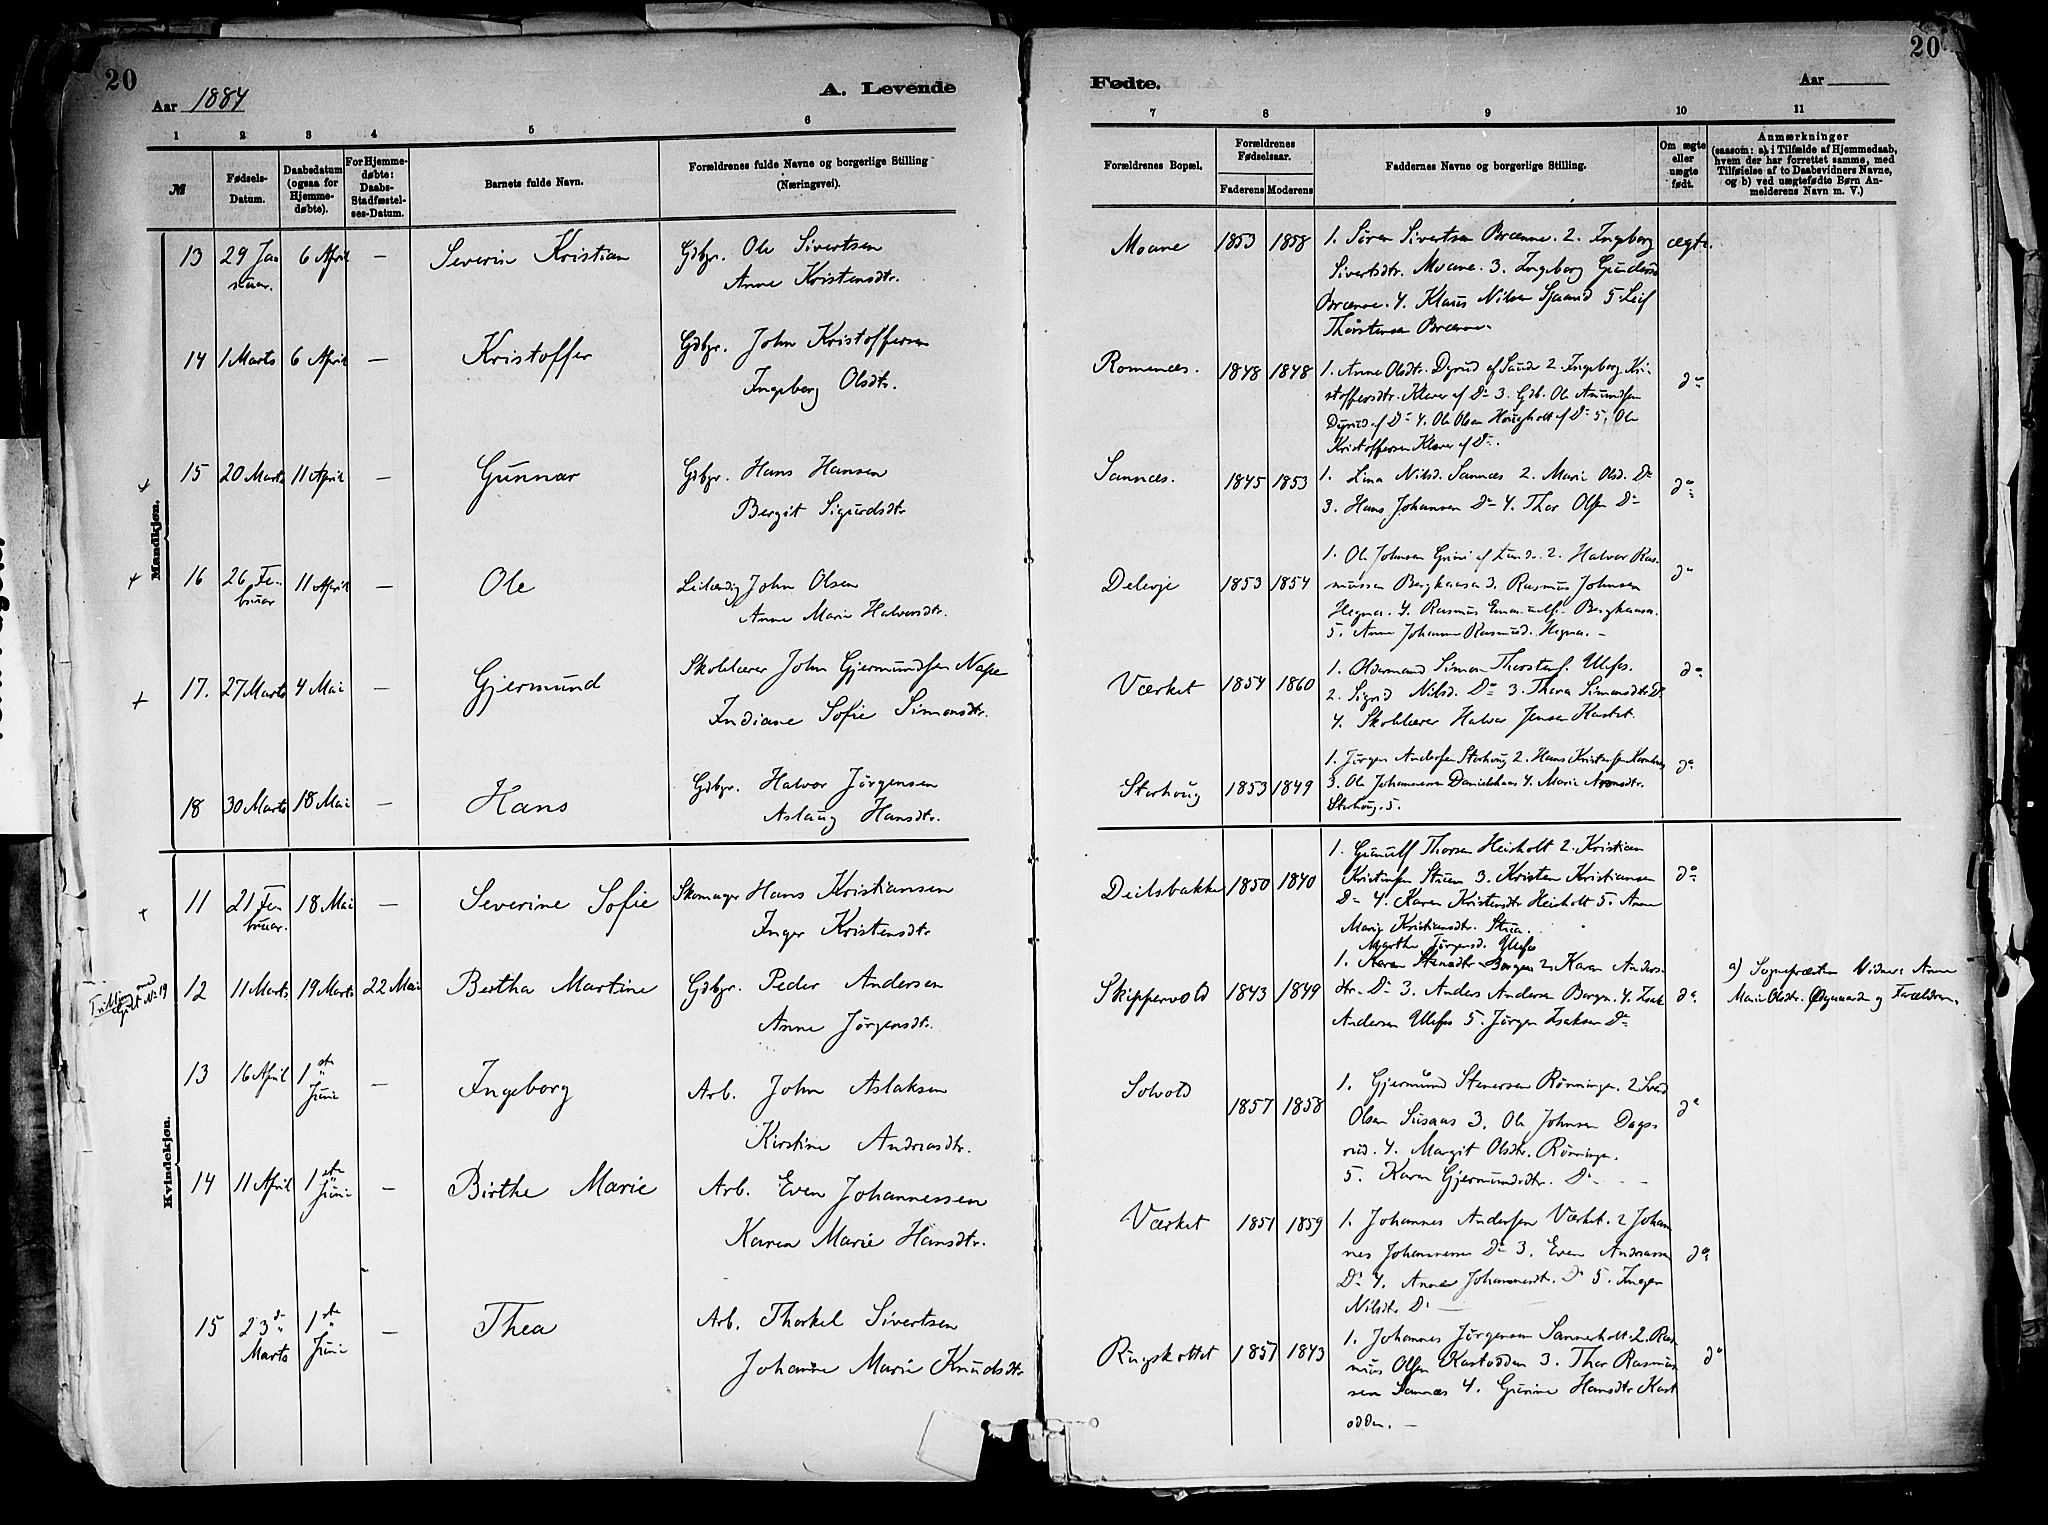 20
Aar 1884
A. Levende
1 2 3 4 5 6
№
Fødsels-
Datum.
Daabsdatum
(ogsaa for
Hjemme-
døbte).
For Hjemme-
døbte:
Daabs-
Stadfæstel-
ses-Datum.
Barnets fulde Navn.
Forældrenes fulde Navne og borgerlige Stilling
(Næringsvei).
Mandkjøn.
13 29 Jan 6 April — Severin Kristian Gdbgr. Ole Sivertsen
uar. Anne Kristensdtr.
14 1 Marts 6 April — Kristoffer Gdbgr. John Kristoffersen
Ingeborg Olsdtr.
+ 15 20 Marts 11 April — Gunnar Gdbgr. Hans Hansen
Bergit Sigurdsdtr
+ 16 26 Fe- 11 April — Ole Leilændig John Olsen
bruar Anne Marie Halvorsdtr.
+ 17. 27 Marts 4 Mai — Gjermund Skolelærer John Gjermundsen Nape
Indiane Sofie Simonsdtr.
18 30 Marts 18 Mai — Hans Gdbgr. Halvor Jørgensen
Aslaug Hansdtr.
Kvindekjøn.
+ 11 21 Fe- 18 Mai — Severine Sofie Skomager Hans Kristiansen
bruar. Inger Kristensdtr
12 11 Marts 19 Marts 22 Mai Bertha Martine Gdbgr. Peder Andersen
Anne Jørgensdtr.
13 16 April 1ste Juni — Ingeborg Arb. John Aslaksen
Kirstine Andreasdtr.
14 11 April 1ste Juni — Birthe Marie Arb. Even Johannessen
Karen Marie Hansdtr.
15 23d 1ste Juni — Thea Arb. Thorkel Sivertsen
Marts Johanne Marie Knudsdtr
20
Fødte.
Aar
7 8 9 10 11
Forældrenes Bopæl.
Forældrenes
Fødselsaar.
Faderens Moderens
Faddernes Navne og borgerlige Stilling.
Om ægte
eller
uægte
født.
Anmærkninger
(saasom: a) i Tilfælde af Hjemmedaab,
hvem der har forrettet samme, med
Tilføielse af to Daabsvidners Navne,
og b) ved uægtefødte Børn An-
melderens Navn m. V.)
Moane 1853 1858 1. Søren Sivertsen Brænne. 2. Ingeborg ægte.
Sivertsdtr. Moane. 3. Ingeborg Gundersd
Brænne. 4. Klaus Nilsen Sjaand 5. Leif
Thorstensen Brænne.
Romenæs. 1848 1848 1. Anne Olsdtr. Dyrud af Sande 2. Ingeborg Kri-
stoffersdtr. Klever af Do 3. Gdb. Ole Amundsen
Dyrud af Do 4. Ole Olsen Haugholt af Do 5. Ole
Kristoffersen Klever af Do.
do
Sannæs. 1845 1853 1. Lina Nilsd. Sannæs 2. Marie Olsd. Do
3. Hans Johansen Do 4. Thor Olsen Do
do
Deleje 1853 1854 1. Ole Johnsen Grini af Lunde. 2. Halvor Ras-
mussen Berghaasa 3. Rasmus Johnsen
Hegna. 4. Rasmus Berghaasa.
5. Anne Johanne Rasmusd. Hegna. —
do
Værket 1854 1860 1. Oldermand Simon Thorstens. Ulefos.
2. Sigrid Nilsd. Do 3. Thora Simonsdtr Do
4. Skolelærer Halvor Jensen Kastet.
do
Storhoug 1853 1849 1. Jørgen Andersen Storhoug 2. Hans Kristensen
3. Ole Johannessen Danielshaas 4. Marie
Storhoug. 5.
do
Deilsbakke 1850 1840 1. Gunulf Thorsen Heisholt 2. Kristian
Kristensen Stuen 3. Kristen Kristiansen
Do 4. Karen Kristensdtr Heisholt 5. Anne
Marie Kristiansdtr. Stua.
do
Marthe Jørgensd. Ulefos
Skippervold 1843 1849 1. Karen Stensdtr. Borgen 2. Karen Anders-
dtr. Do 3. Anders Andersen Borgen. 4. Isak
Andersen Ulefos 5. Jørgen Isaksen Do
do a) Sognepræsten Vidner: Anne
Marie Olsdtr. Ødegaarden og Forældrene.
Solvold 1857 1858 1. Gjermund Stenersen Rønningen. 2
Olsen Susaas 3. Ole Johnsen Dags-
rud. 4. Margit Olsdtr. Rønningen.
5. Karen Gjermundsdtr. Do
do
Værket 1851 1859 1. Johannes Andersen Værket. 2 Johan
nes Johannessen Do 3. Even Andreassen
Do 4. Anne Johannesdtr. Do 5. Inger
Nilsdtr Do —
do
Ringskottet 1857 1843 1. Johannes Jørgensen Sannerholt. 2. Ras-
mus Olsen Kastodden 3. Thor Rasmus
sen Sannæs 4. Gurine Hansdtr Kast
odden. —
do